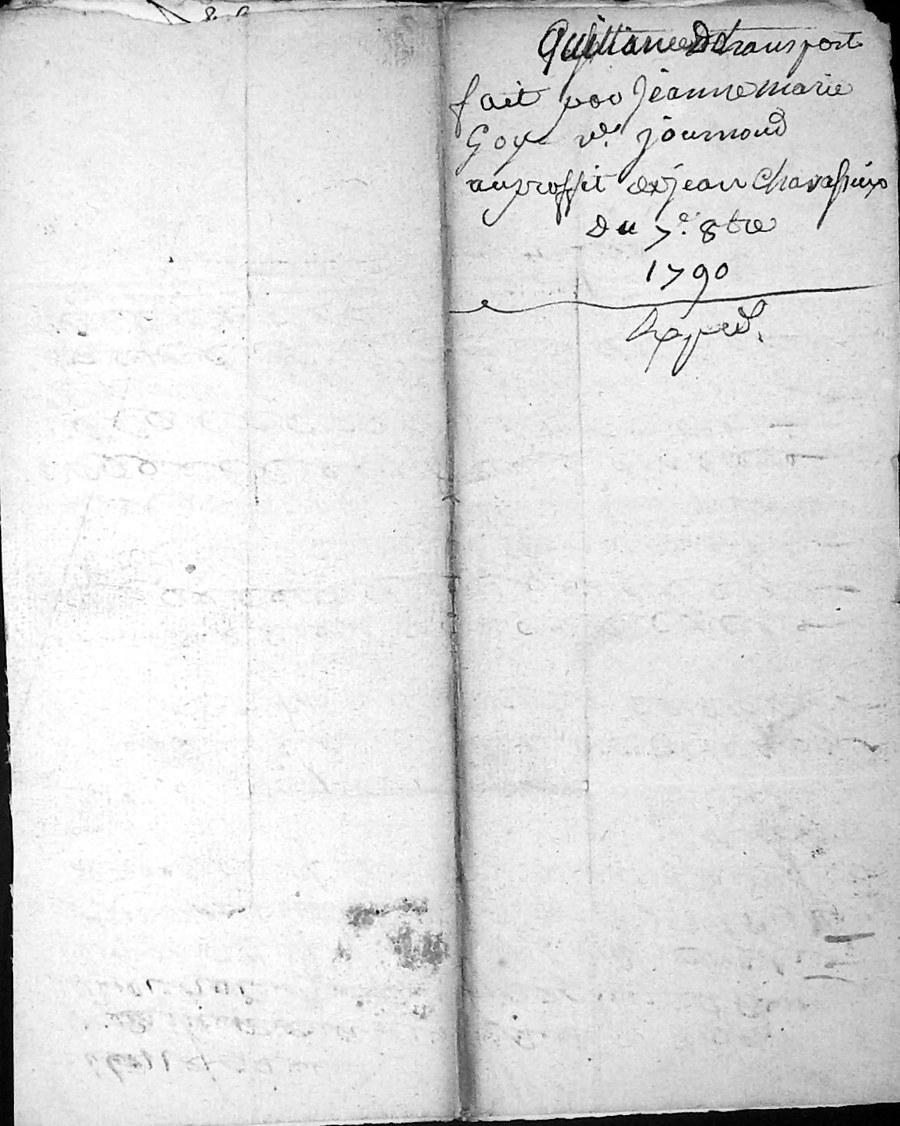 Quittance Du transport
fait par Jeanne marie
Goy ve. journoud
au proffit de jean Chavassieux
Du 7e. 8bre
1790
Exped.